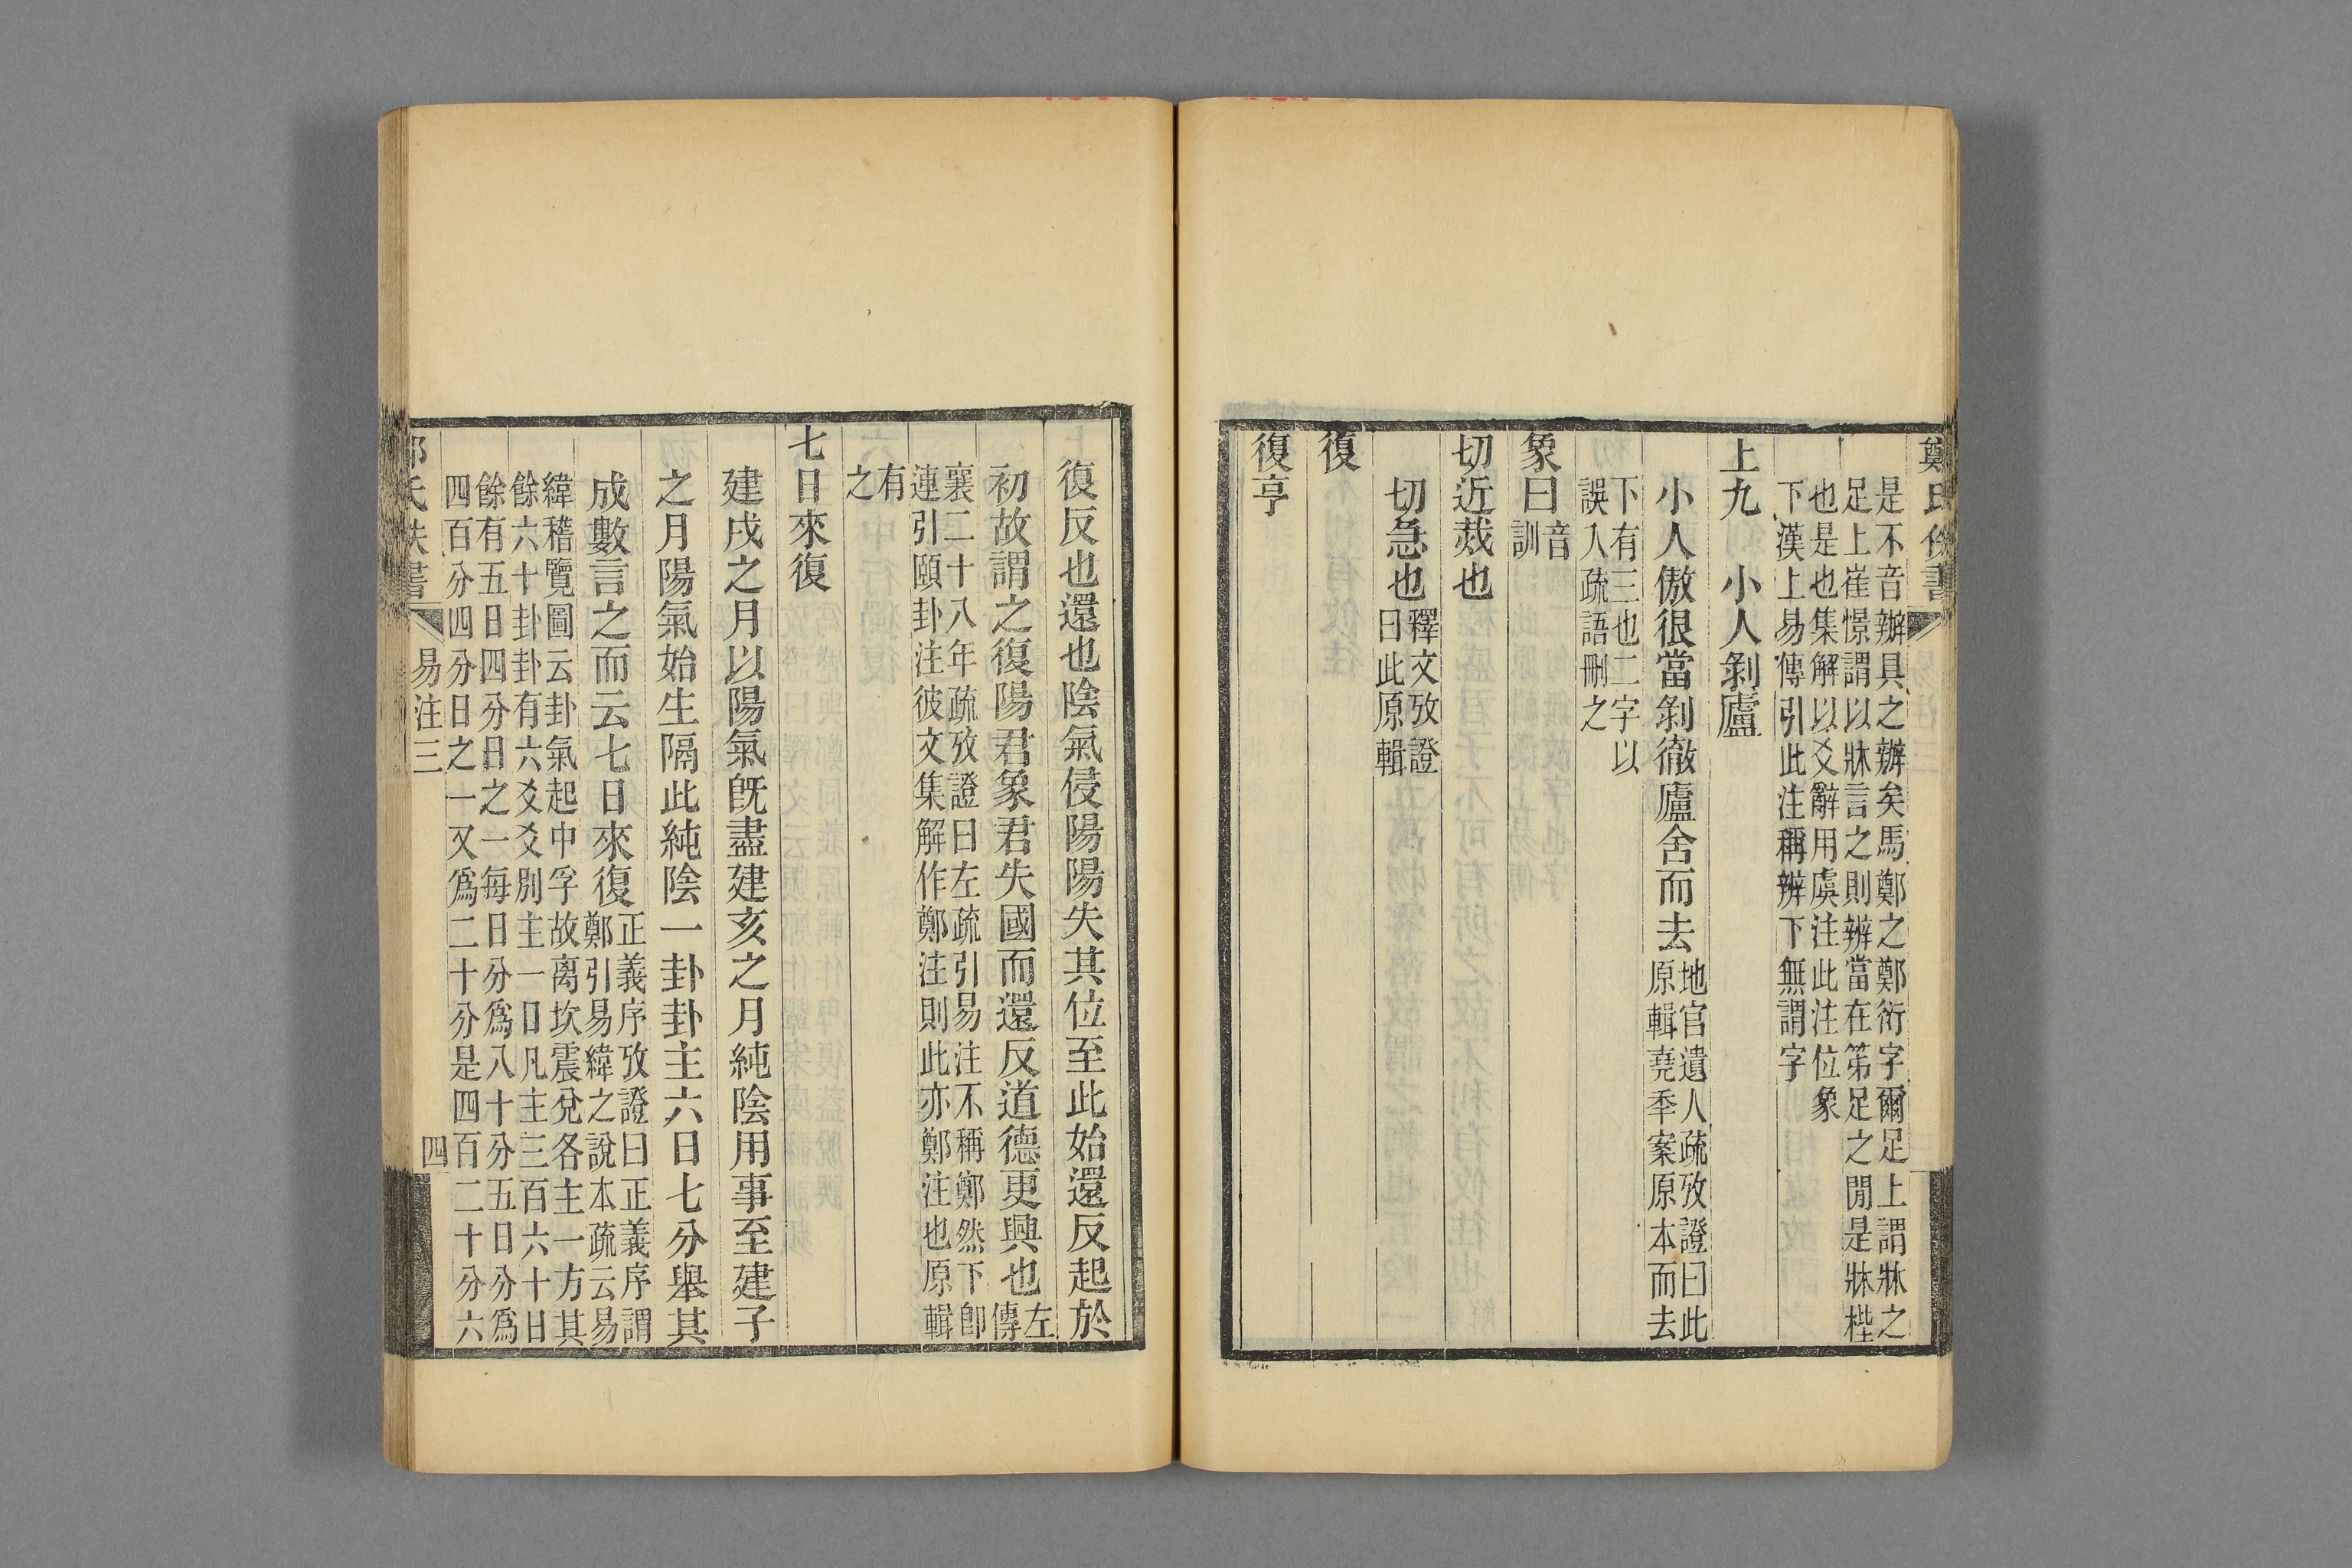 鄭氏佚書
是不音辦具之辦矣馬鄭之鄭衍字爾足上謂牀之
足上崔憬謂以牀言之則辨當在笫足之閒是牀梐
也是也集解以爻辭用虞注此注位象
下漢上易傳引此注稱辨下無謂字
上九 小人剝廬
小人傲很當剝徹廬舍而去
地官遺人疏攷證曰此
原輯堯年案原本而去
下有三也二字以
誤入疏語刪之
象曰
音
訓
切近烖也
切急也
釋文攷證
曰此原輯
復
復亨
復反也還也陰氣侵陽陽失其位至此始還反起於
初故謂之復陽君象君失國而還反道德更興也
左
傳
襄二十八年疏攷證曰左疏引易注不稱鄭然下卽
連引頤卦注彼文集解作鄭注則此亦鄭注也原輯
有
之
七日來復
建戌之月以陽氣旣盡建亥之月純陰用事至建子
之月陽氣始生隔此純陰一卦卦主六日七分舉其
成數言之而云七日來復
正義序攷證曰正義序謂
鄭引易緯之說本疏云易
緯稽覽圖云卦氣起中孚故离坎震兌各主一方其
餘六十卦卦有六爻爻別主一日凡主三百六十日
餘有五日四分日之一每日分爲八十分五日分爲
四百分四分日之一又爲二十分是四百二十分六
鄭氏佚書
易注三
四